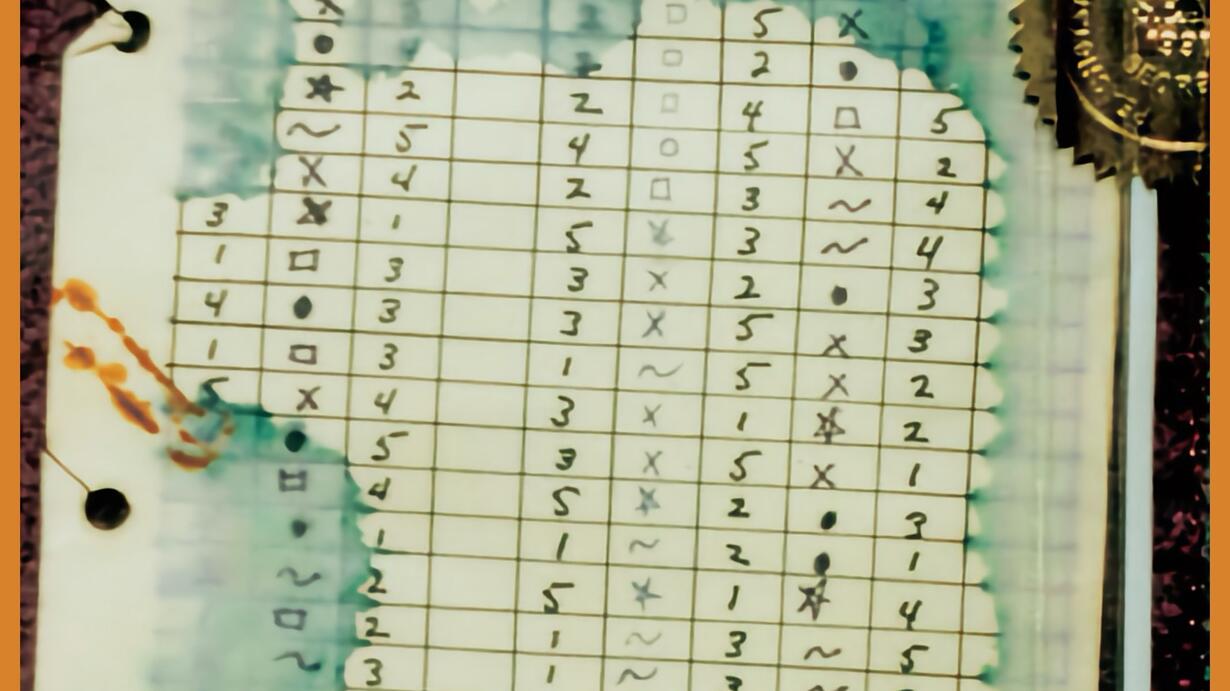 X □ 5 X
● □ 2 ●
★ 2 2 □ 4 □ 5
~ 5 4 ○ 5 X 2
X 4 2 □ 3 ~ 4
3 ★ 1 5 ★ 3 ~ 4
1 □ 3 3 X 2 ● 3
4 ● 3 3 X 5 X 3
1 □ 3 1 ~ 5 X 2
5 X 4 3 X 1 ☆ 2
● 5 3 X 5 X 1
□ 4 5 ★ 2 ● 3
● 1 1 ~ 2 ● 1
~ 2 5 ★ 1 ☆ 4
□ 2 1 ~ 3 ~ 5
~ 3 1 ~ 3